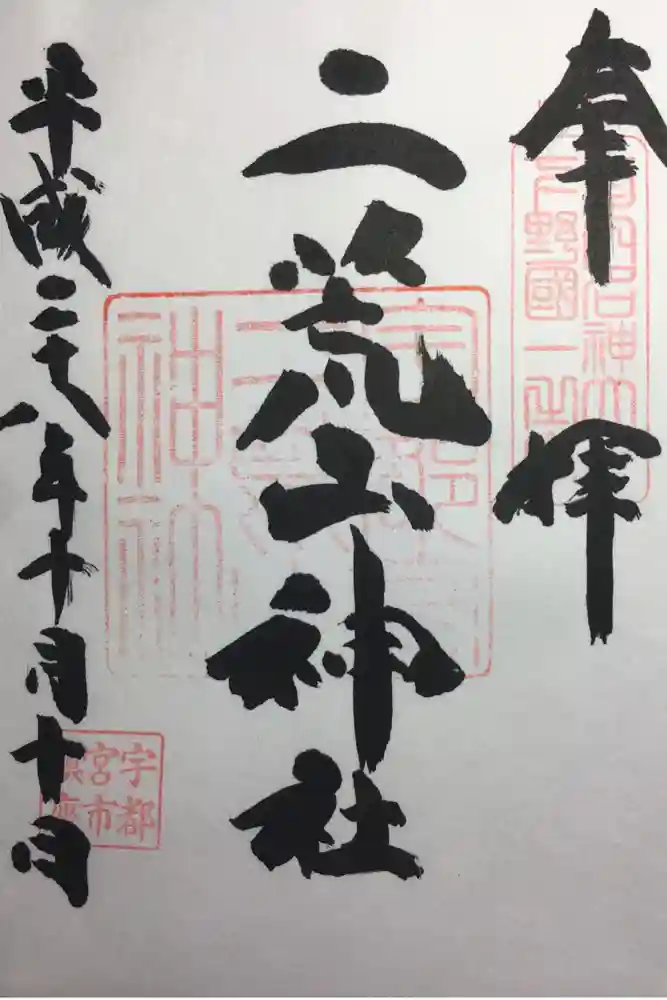 奉拝
下野國一之宮
二荒山神社
宇都宮
二荒山
神社
平成二十八年十月十日
宇都
宮市
鎮座